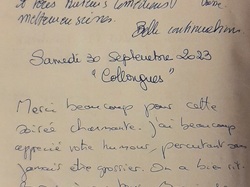 et tous auteurs comédiens! vous
metteur en scène.
Belle continuation
Samedi 30 Septembre 2023
"Collongues"
Merci beaucoup pour cette
soirée charmante. J'ai beaucoup
apprécié votre humour, percutant sans
jamais être grossier. On a bien rit